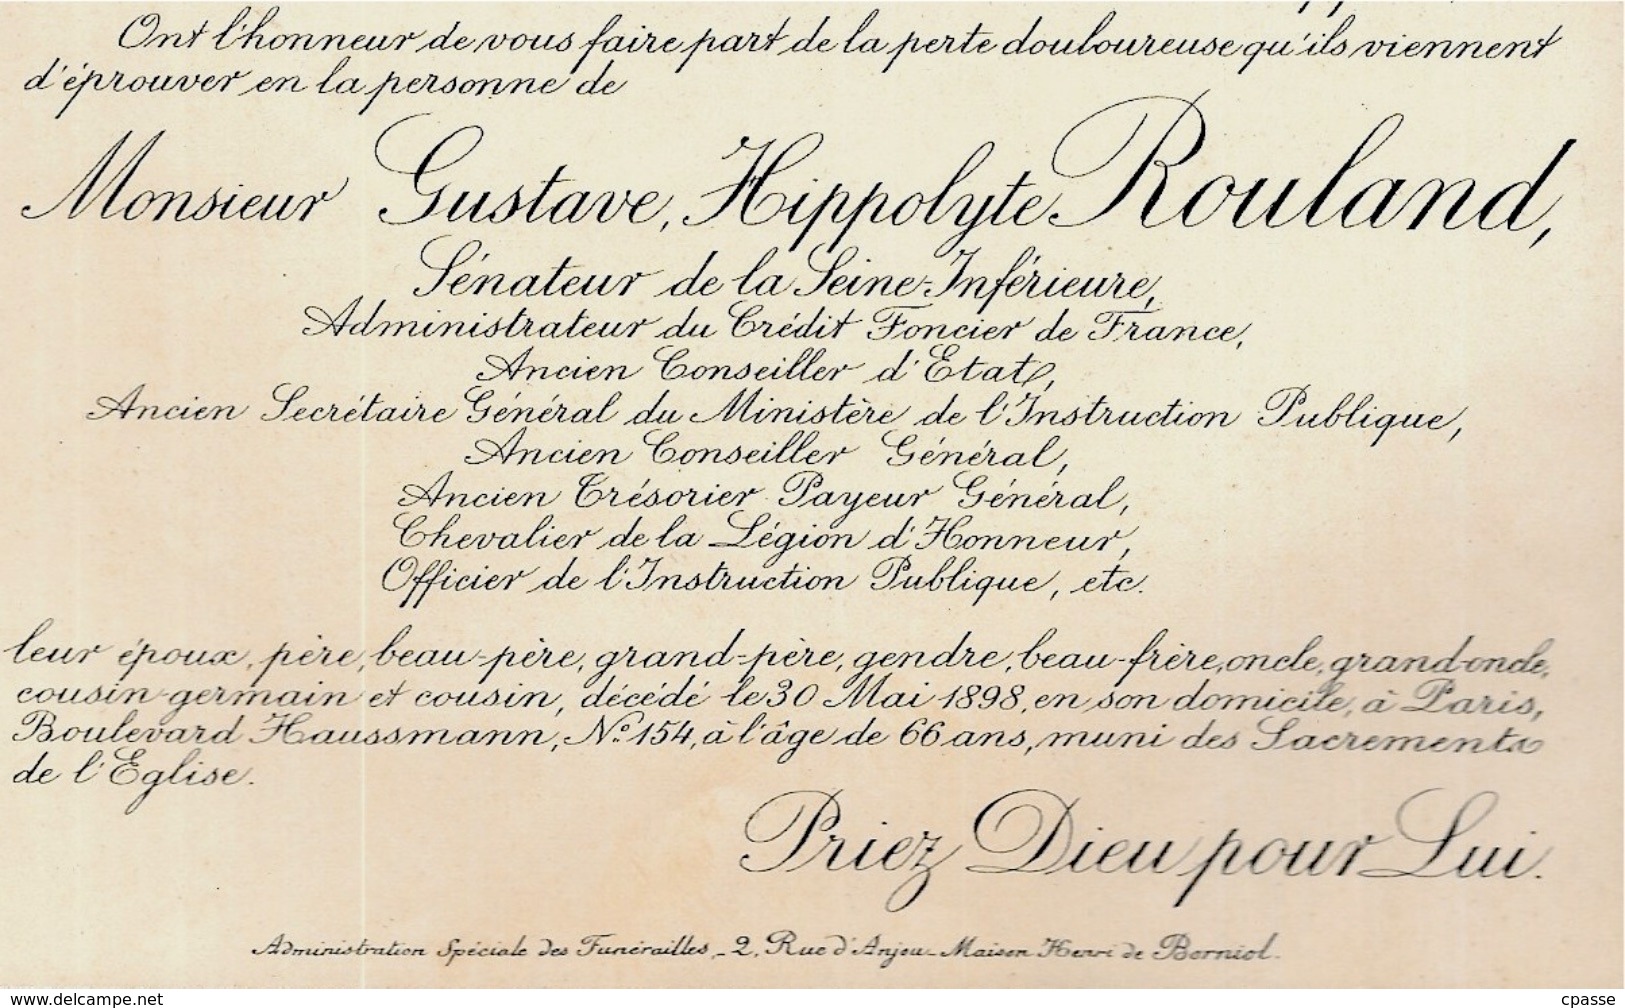 Ont l'honneur de vous faire part de la perte douloureuse qu'ils viennent
d'éprouver en la personne de
Monsieur Gustave, Hippolyte Rouland,
Sénateur de la Seine-Inférieure,
Administrateur du Crédit Foncier de France,
Ancien Conseiller d'Etat,
Ancien Secrétaire Général du Ministère de l'Instruction Publique,
Ancien Conseiller Général,
Ancien Trésorier Payeur Général,
Chevalier de la Légion d'Honneur,
Officier de l'Instruction Publique, etc.
leur époux, père, beau-père, grand-père, gendre, beau-frère, oncle, grand-oncle,
cousin-germain et cousin, décédé le 30 Mai 1898, en son domicile, à Paris,
Boulevard Haussmann, No 154, à l'âge de 66 ans, muni des Sacrements
de l'Eglise.
Priez Dieu pour Lui.
Administration Spéciale des Funérailles, - 2, Rue d'Anjou - Maison Henri de Borniol.
www.delcampe.net
cpasse